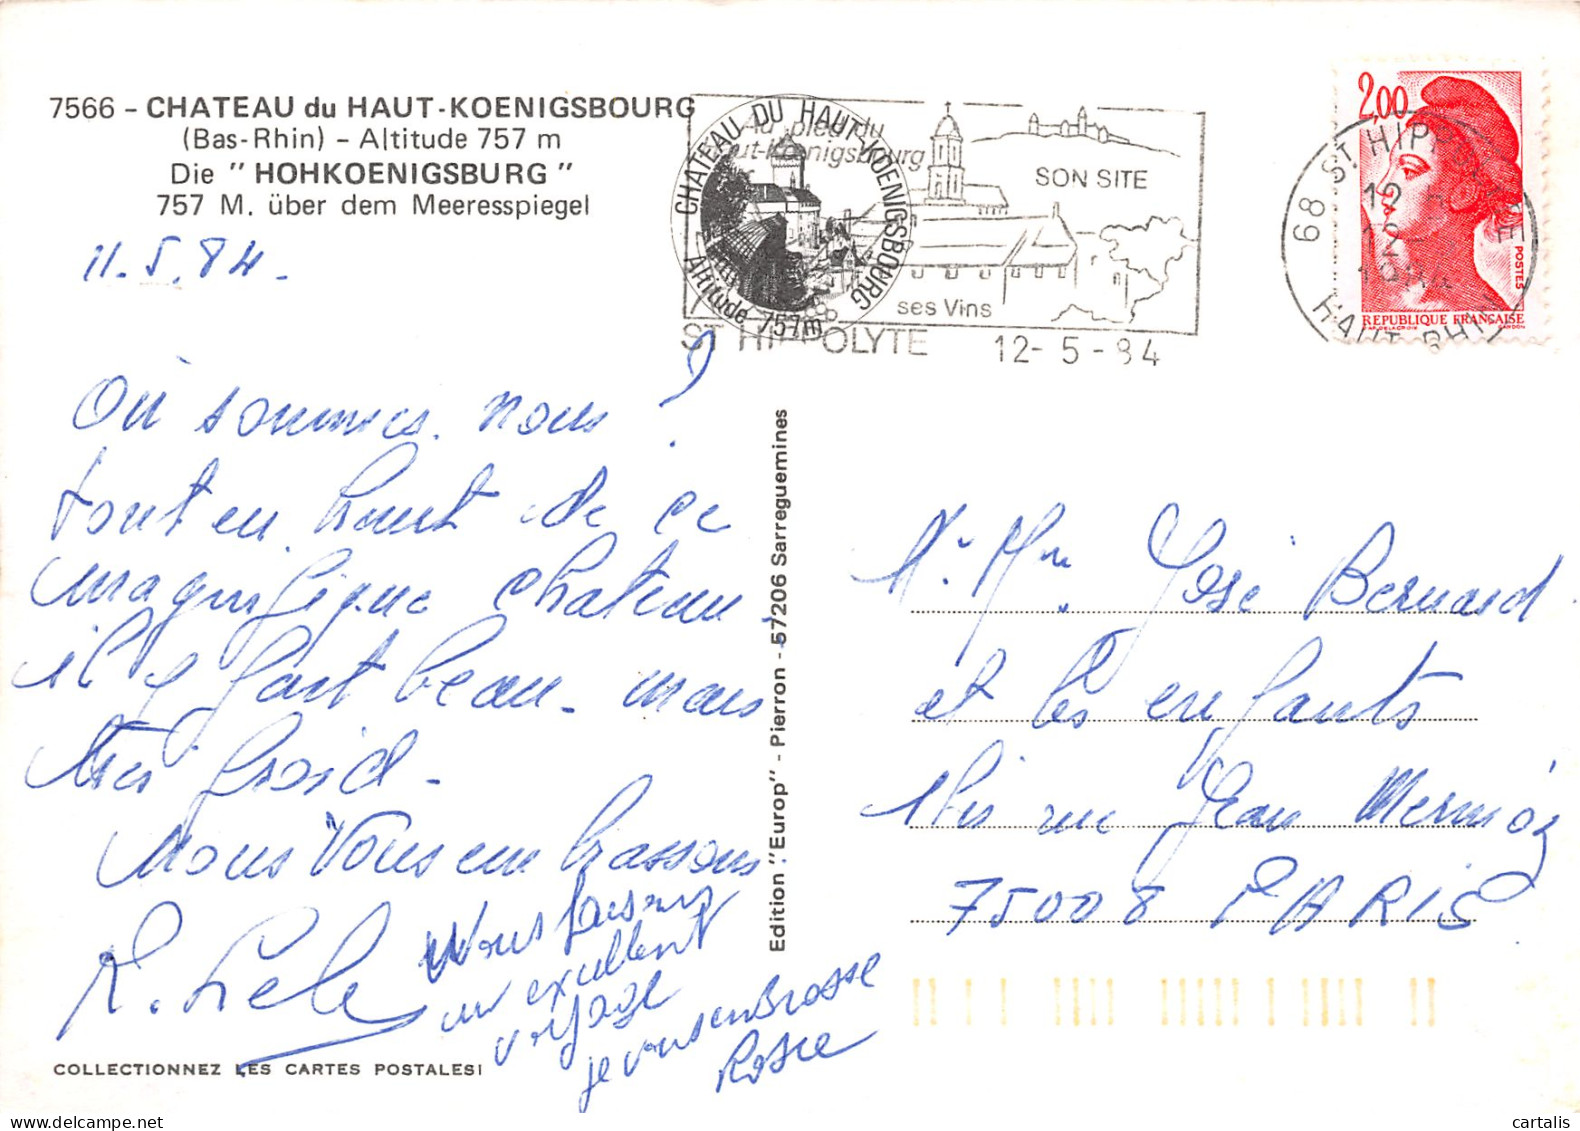 7566 - CHATEAU du HAUT-KOENIGSBOURG
(Bas-Rhin) - Altitude 757 m
Die "HOHKOENIGSBURG"
757 M. über dem Meeresspiegel
11.5.84.
Où sommes nous ?
tout en haut de ce
magnifique chateau
il y fait beau - mais
très froid -
Nous Vous embrassons
Nous faisons
un excellent
voyage
je vous embrasse
Rosie
COLLECTIONNEZ LES CARTES POSTALES!
Edition "Europ" - Pierron - 57206 Sarreguemines
CHATEAU DU HAUT-KOENIGSBOURG
Altitude 757m
Au pied du
Haut-Koenigsbourg
SON SITE
ses Vins
ST HIPPOLYTE 12-5-84
68 ST HIPPOLYTE
12-5
1984
HAUT-RHIN
2,00
POSTES
REPUBLIQUE FRANÇAISE
M. Mme José Bernard
et les enfants
1 bis rue Jean Mermoz
75008 PARIS
cartalis